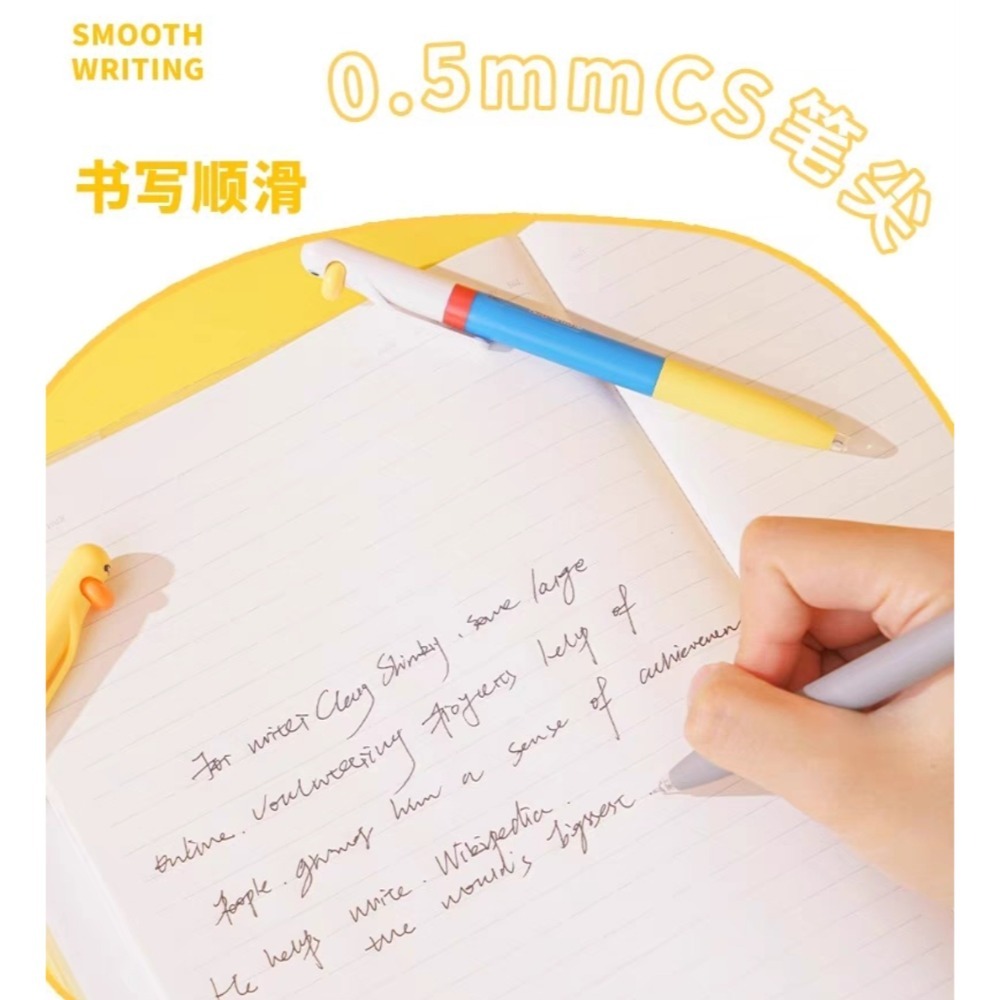 SMOOTH
WRITING
0.5mmCS笔尖
书写顺滑
For writer Clay Shirky, some large
online. Voulnteering projects help of
people. him a sense of achievemen
He helps write. Wikipedia.
the would's biggest